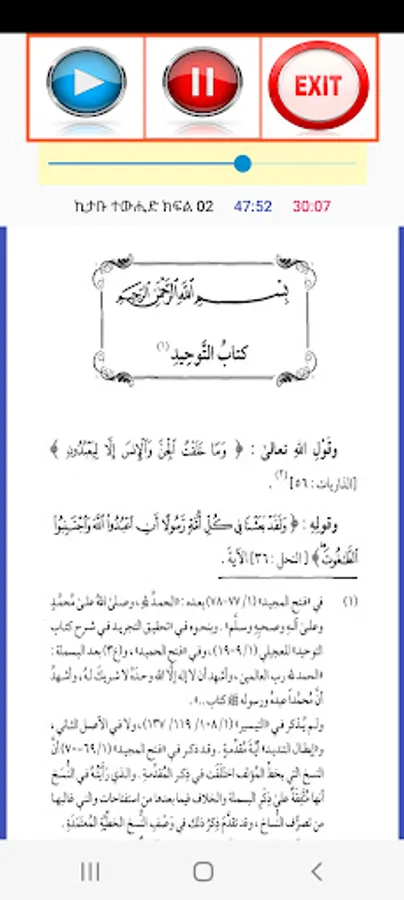 EXIT
ኪታቡ ተውሒድ ክፍል 02 47:52 30:07
بِسْمِ اللَّهِ الرَّحْمَٰنِ الرَّحِيمِ
كتابُ التَّوحِيدِ (١)
وقَوْلِ اللهِ تعالىٰ : ﴿ وَمَا خَلَقْتُ ٱلْجِنَّ وَٱلْإِنسَ إِلَّا لِيَعْبُدُونِ ﴾
[الذاريات : ٥٦] (٢) .
وقولِهِ : ﴿ وَلَقَدْ بَعَثْنَا فِي كُلِّ أُمَّةٍ رَّسُولًا أَنِ ٱعْبُدُوا۟ ٱللَّهَ وَٱجْتَنِبُوا۟
ٱلطَّٰغُوتَ ﴾ [ النحل : ٣٦] الآيةَ .
(١) في «فتح المجيد» (١/ ٧٧-٧٨) بعده : «الحمدُ لله، وصلىٰ اللهُ علىٰ محمَّدٍ
وعلىٰ آلهِ وصحبهِ وسلَّم» . وبنحوه في «تحقيق التجريد في شرح كتاب
التوحيد» للعجيلي (١/ ٩-١٩)، وفي «فتح الحميد»، و(غ٣) بعد البسملة :
«الحمد لله رب العالمين، وأشهد أن لا إله إلَّا الله وحدَهُ لا شريكَ لهُ، وأشهدُ
أنَّ مُحمَّداً عبدُهُ ورسوله ﷺ كتاب...» .
ولم يُذكر في «التيسير» (١/ ١٠٨/ ١١٩/ ١٣٧)، ولا في الأصل الثاني،
و«إبطال التنديد» أيَّةُ مُقدِّمةٍ . وقد ذكر في «فتح المجيد» (١/ ٦٩-٧٠) أنَّ
النسخ التي بخطِّ المُؤلِّف اختلَفَت في ذِكرِ المُقدِّمةِ . والذي رَأيتُهُ في النُّسَخِ
أنها مُتَّفِقَةٌ علىٰ ذِكرِ البسملة والخلاف فيما بعدها من استفتاحات والتي غالبها
من تصرُّفِ النُّساخِ، وقد تقدَّمَ ذِكرُ ذلك في وَصْفِ النُّسخِ الخطِّيَّةِ المُعتمَدَةِ .